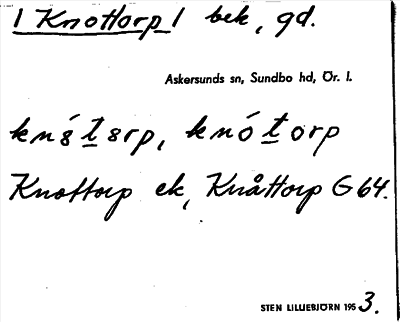 1 Knottorp 1 bek, gd.
Askersunds sn, Sundbo hd, Ör. l.
knó́t̲orp
Knottorp ek, Knåttorp G 64.
STEN LILLIEBJÖRN 1953.